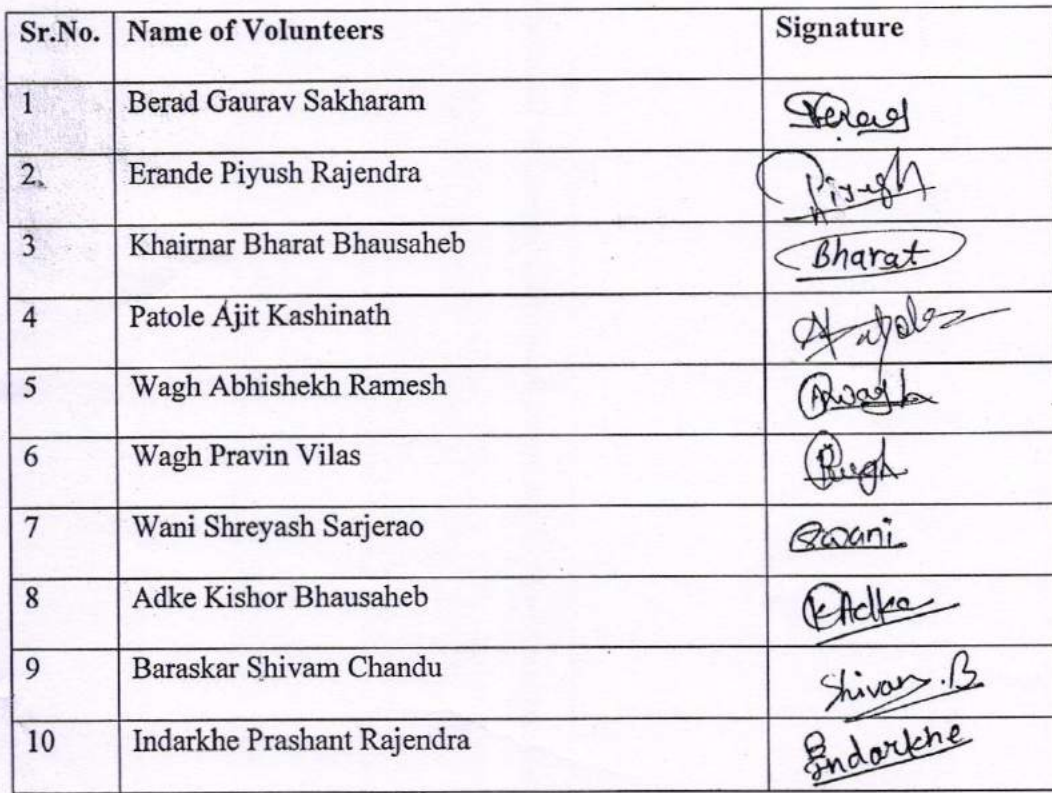 Sr.No. Name of Volunteers Signature
1 Berad Gaurav Sakharam
2. Erande Piyush Rajendra Piyush
3 Khairnar Bharat Bhausaheb Bharat
4 Patole Ajit Kashinath
5 Wagh Abhishekh Ramesh
6 Wagh Pravin Vilas
7 Wani Shreyash Sarjerao Swani
8 Adke Kishor Bhausaheb KAdke
9 Baraskar Shivam Chandu Shivam.B
10 Indarkhe Prashant Rajendra Indarkhe